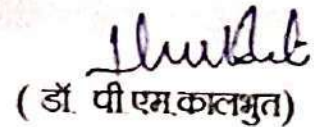 ( डॉ. पी एम.कालभुत)